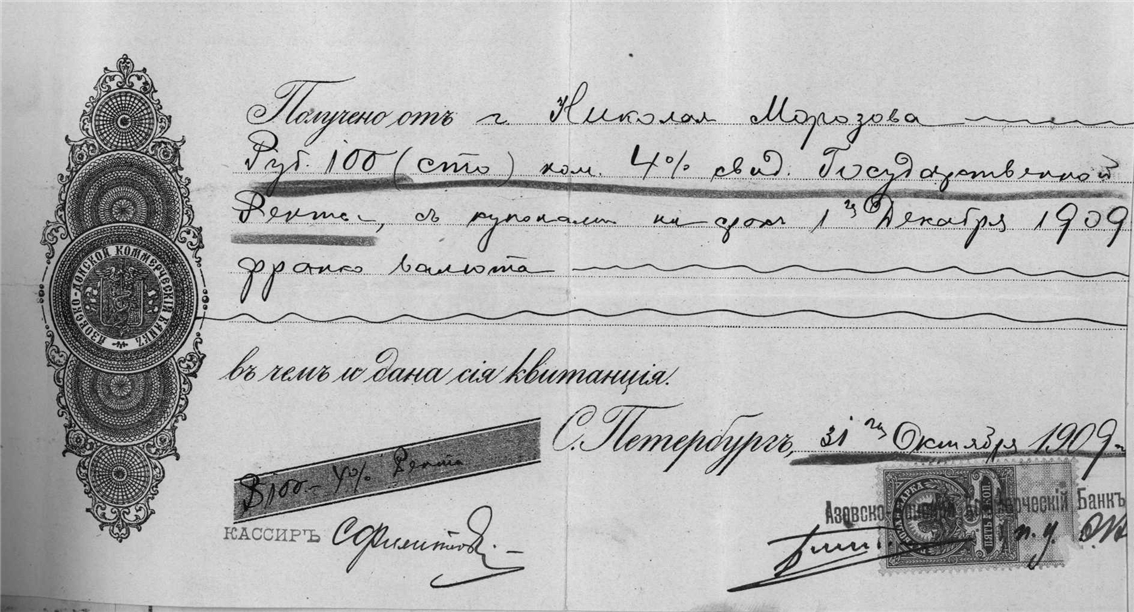 АЗОВСКО-ДОНСКОЙ КОММЕРЧЕСКІЙ БАНКЪ
Получено отъ г. Николая Морозова
Руб. 100 (сто) ном. 4% свид. Государственной
Ренты, съ купонами на срокъ 1го Декабря 1909
франко валюта
въ чемъ и дана сія квитанція.
С. Петербургъ, 31го Октября 1909
R 100– 4% Рента
КАССИРЪ
Азовско- Банкъ
ПЯТЬ КОП